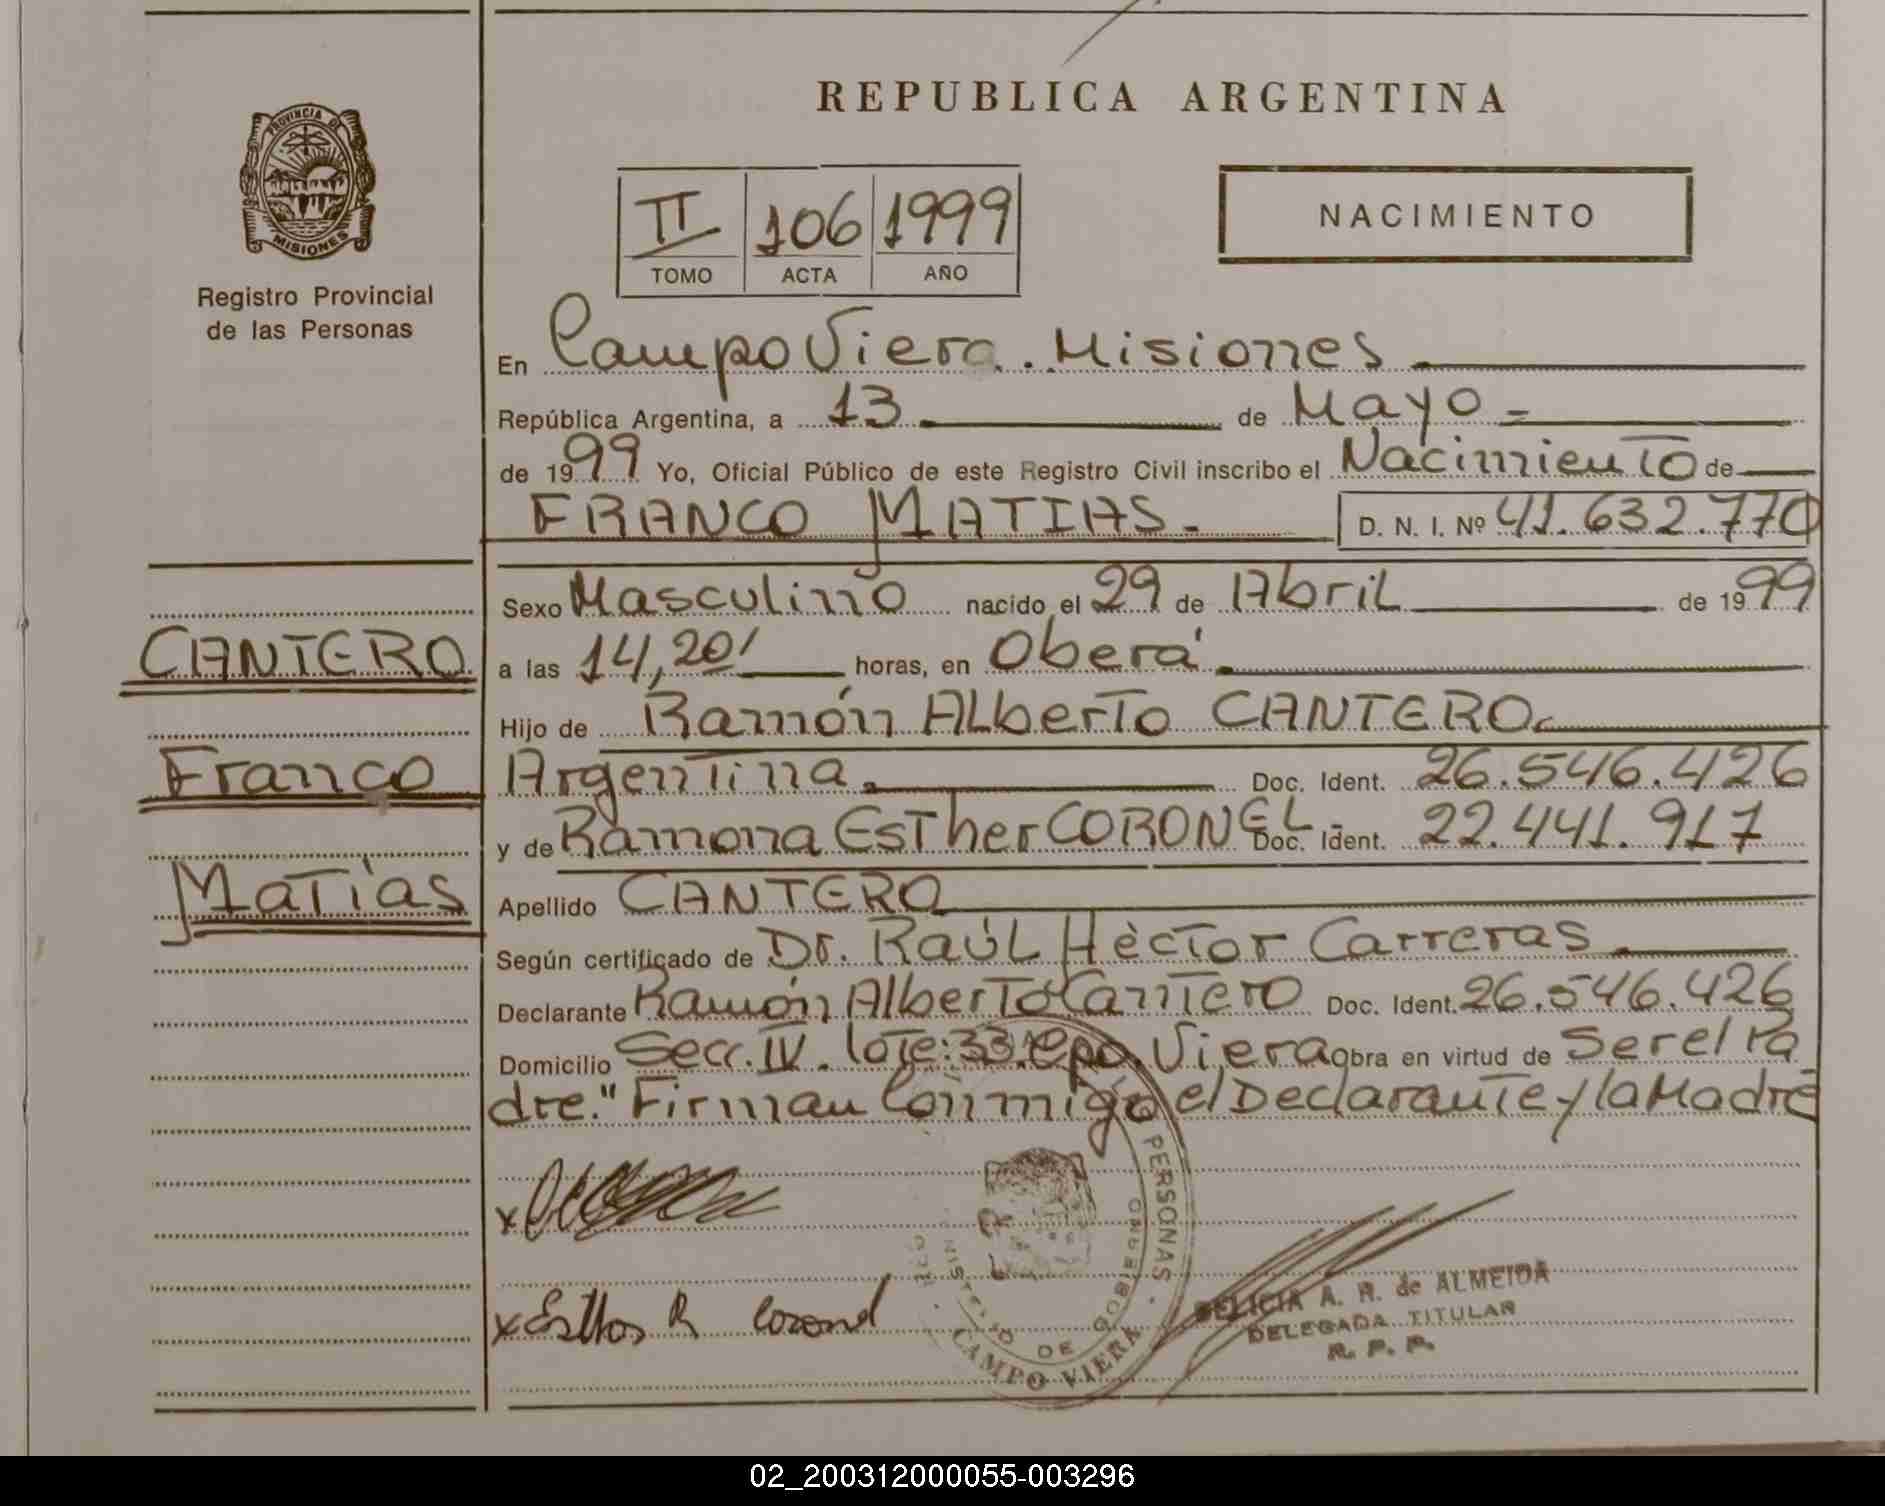 REPUBLICA ARGENTINA
PROVINCIA DE
MISIONES
Registro Provincial
de las Personas
II 106 1999
TOMO ACTA AÑO
NACIMIENTO
En Campo Viera. Misiones
República Argentina, a 13 de Mayo
de 1999 Yo, Oficial Público de este Registro Civil inscribo el Nacimiento de
FRANCO MATIAS. D. N. I. Nº 41.632.770
Sexo Masculino nacido el 29 de Abril de 1999
CANTERO
a las 14,20' horas, en Oberá
Hijo de Ramón Alberto CANTERO.
Franco
Argentina. Doc. Ident. 26.546.426
y de Ramona Esther CORONEL - Doc. Ident. 22.441.917
Matías
Apellido CANTERO
Según certificado de Dr. Raúl Hèctor Carreras
Declarante Ramón Alberto Cantero Doc. Ident. 26.546.426
Domicilio Secc. IV. lote: 33. Cpo. Viera Obra en virtud de Ser el Pa
dre." Firman Conmigo el Declarante y la Madre
PERSONAS
DE GOBIERNO
CAMPO VIERA
x Esther R Coronel
A. R. de ALMEIDA
DELEGADA TITULAR
R. P. P.
02_200312000055-003296